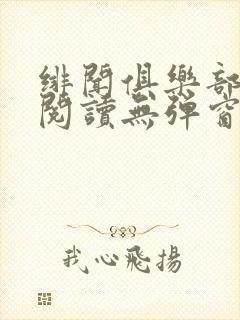 緋聞俱樂部
閱讀無彈窗
我心飛揚